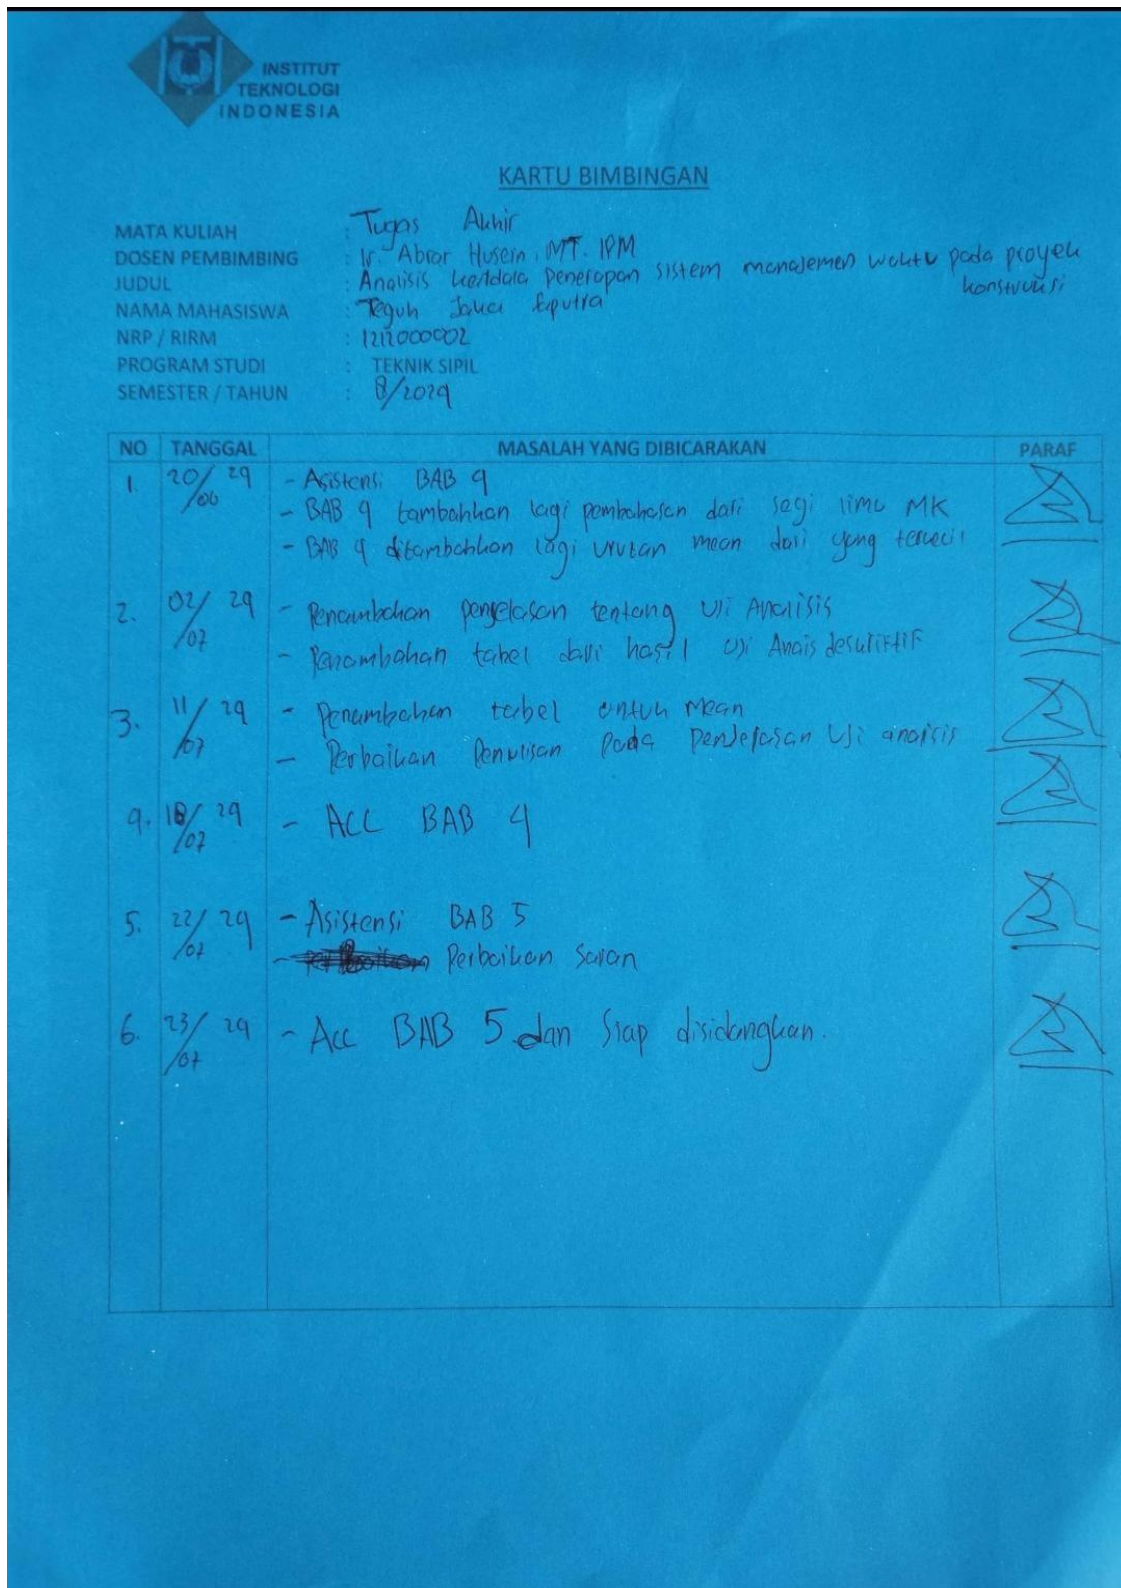 INSTITUT
TEKNOLOGI
INDONESIA
KARTU BIMBINGAN
MATA KULIAH : Tugas Akhir
DOSEN PEMBIMBING : Ir. Abrar Husein, MT. IPM
JUDUL : Analisis kendala penerapan sistem manajemen waktu pada proyek
konstruksi
NAMA MAHASISWA : Teguh Jaka Saputra
NRP / RIRM : 1212000002
PROGRAM STUDI : TEKNIK SIPIL
SEMESTER / TAHUN : 8/2024
NO TANGGAL MASALAH YANG DIBICARAKAN PARAF
1. 20/06 24 - Asistensi BAB 4
- BAB 4 tambahkan lagi pembahasan dari segi ilmu MK
- BAB 4 ditambahkan lagi urutan mean dari yang terkecil
2. 02/07 24 - Penambahan penjelasan tentang Uji Analisis
- Penambahan tabel dari hasil Uji Anais deskriftif
3. 11/07 24 - Penambahan tabel untuk Mean
- Perbaikan Penulisan pada Penjelasan Uji analisis
4. 18/07 24 - ACC BAB 4
5. 22/07 24 - Asistensi BAB 5
- Perbaikan Saran
6. 23/07 24 - Acc BAB 5 dan Siap disidangkan.